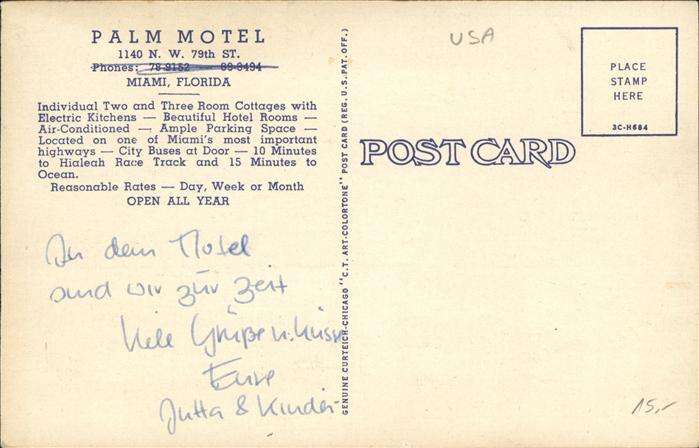 PALM MOTEL
1140 N. W. 79th ST.
Phones: 78-9152 89-9494
MIAMI, FLORIDA
Individual Two and Three Room Cottages with
Electric Kitchens — Beautiful Hotel Rooms —
Air-Conditioned — Ample Parking Space —
Located on one of Miami's most important
highways — City Buses at Door — 10 Minutes
to Hialeah Race Track and 15 Minutes to
Ocean.
Reasonable Rates — Day, Week or Month
OPEN ALL YEAR
In dem Motel
sind wir zur Zeit
Viele Grüße u. Küsse
Eure
Jutta & Kinder
GENUINE CURTEICH-CHICAGO "C.T. ART-COLORTONE" POST CARD (REG. U.S. PAT. OFF.)
USA
POST CARD
PLACE
STAMP
HERE
3C-H684
15,-